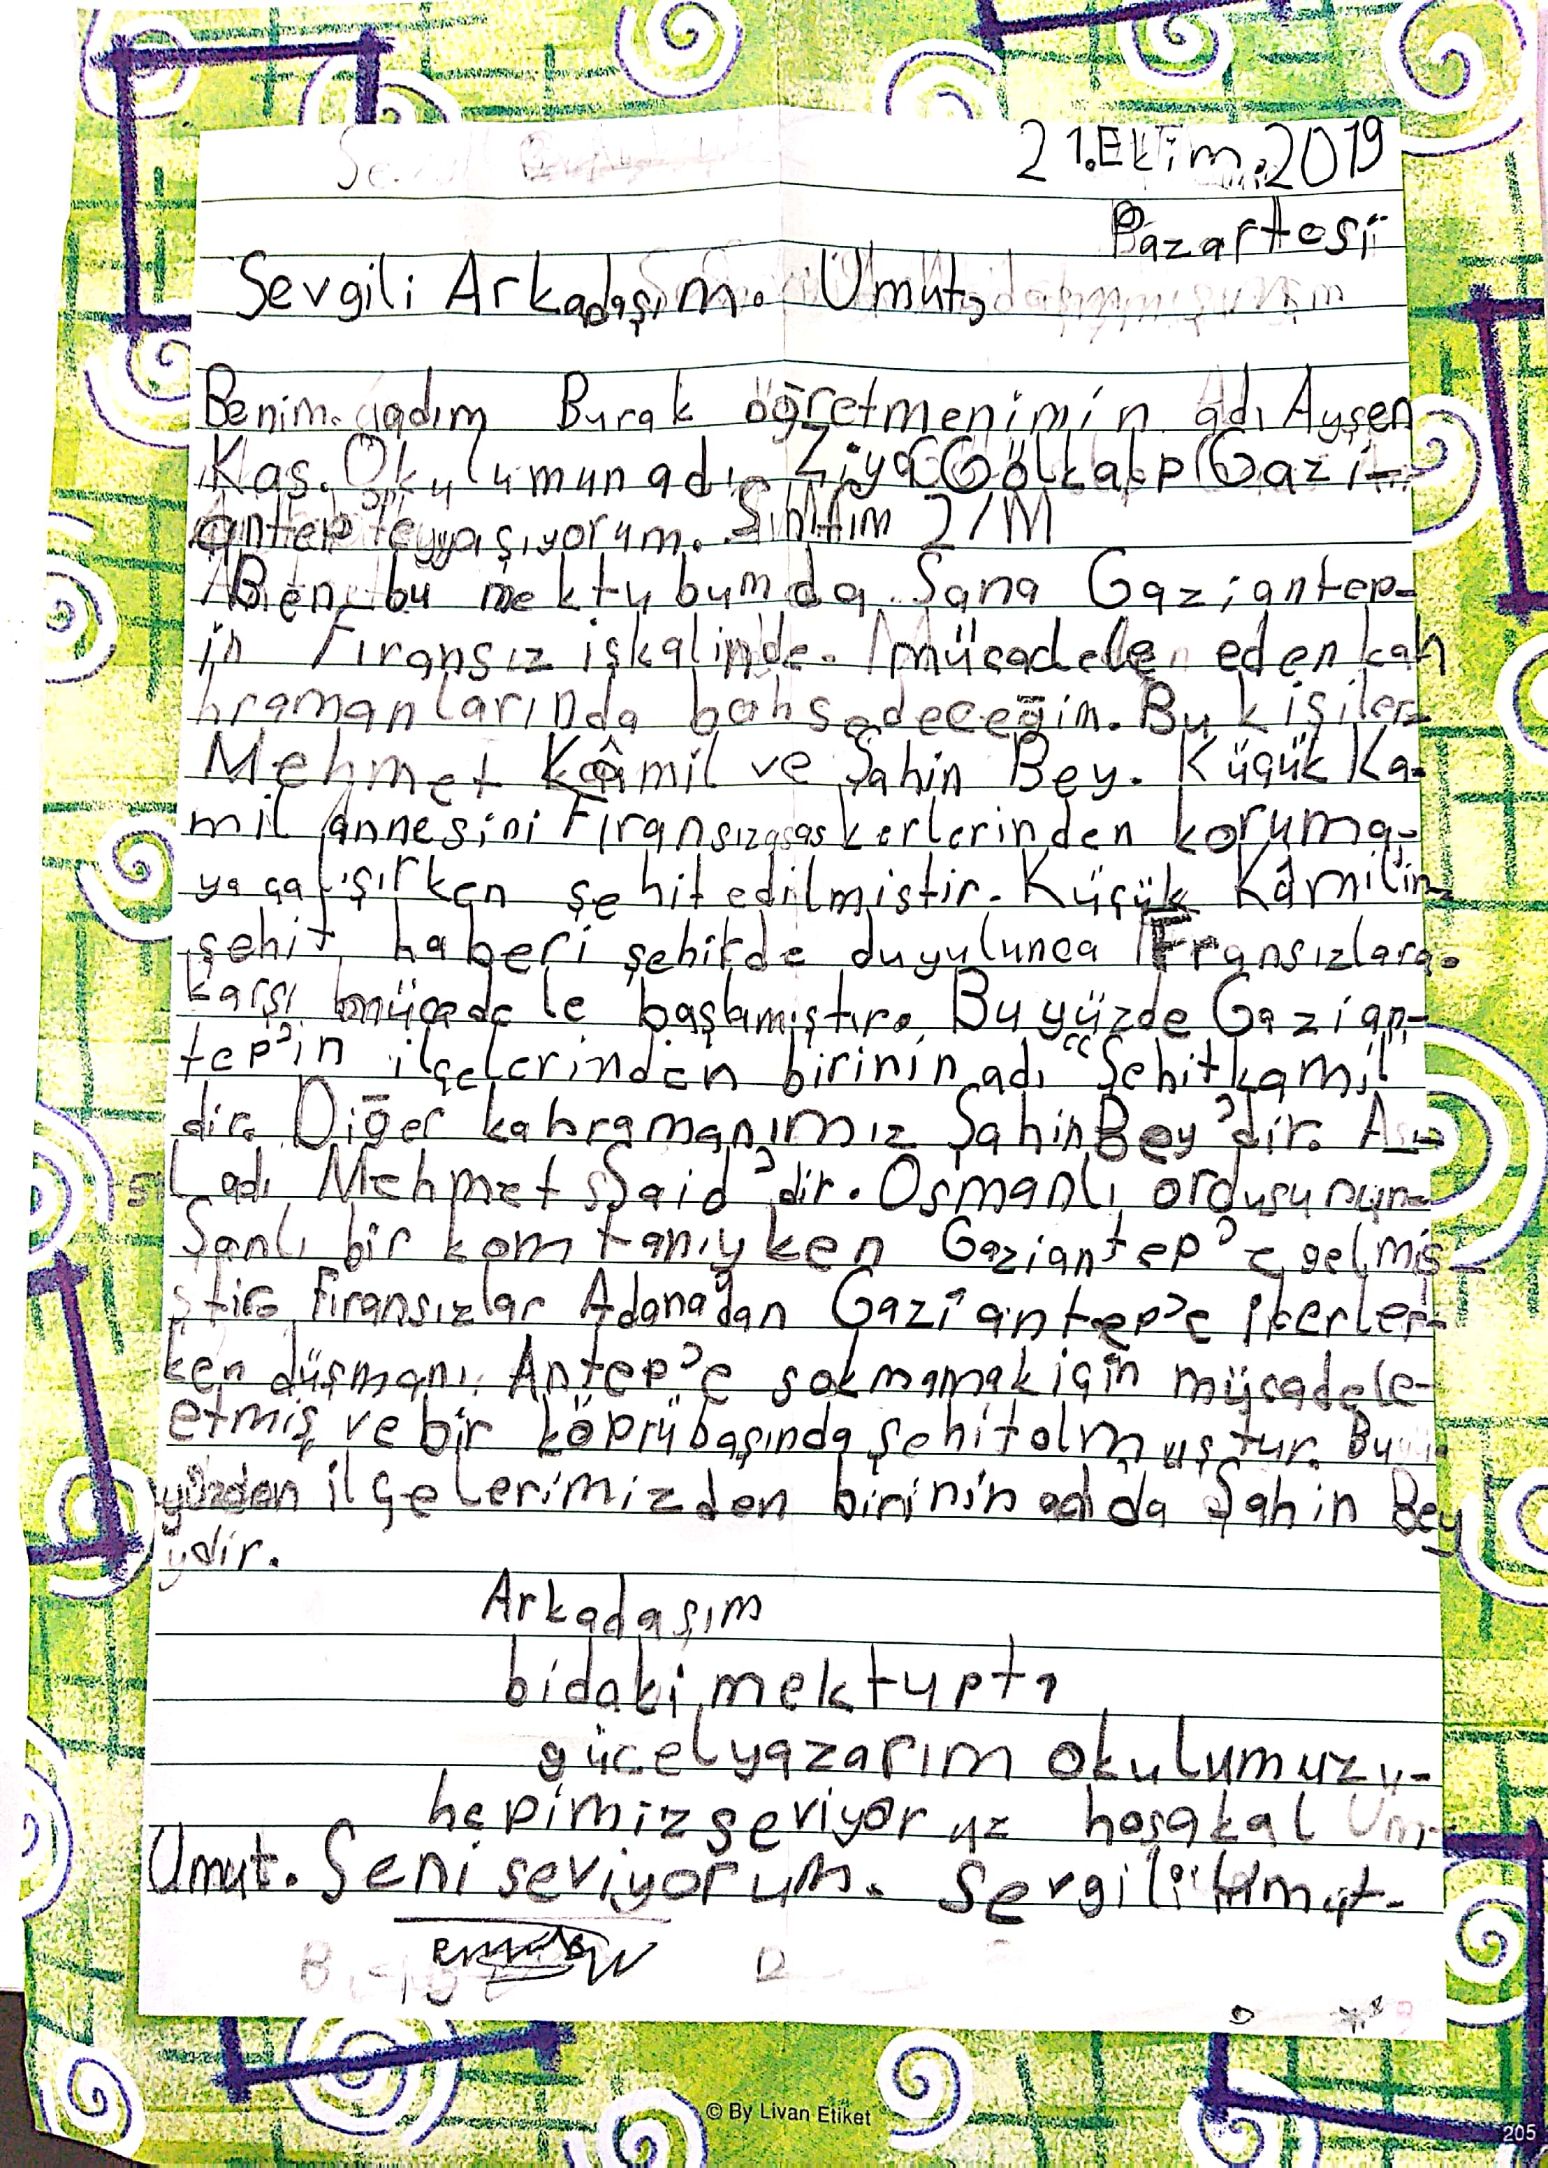 21.Ekim.2019
Pazartesi
Sevgili Arkadaşım. Umut,
Benim adım Burak öğretmenimin adı Ayşen
Kaş. Okulumun adı Ziya Gölkalp Gazi-
antep'teyyaşıyorum. Sınıfım 2/M
Ben bu mektubumda Sana Gaziantep-
in Firansız işkalinde. mücadele eden kah
hramanlarında bahsedeceğim. Bu kişiler
Mehmet Kâmil ve Şahin Bey. Küçük Ka-
mil annesini Firansız askerlerinden koruma-
ya çalışırken şehit edilmiştir. Küçük Kâmilin
şehit haberi şehirde duyulunca Fransızlara.
karşı mücadele başlamıştır. Bu yüzde Gazian-
tep'in ilçelerinden birinin adı "Şehitkamil"
dir. Diğer kahramanımız Şahin Bey'dir. Ası-
l adı Mehmet Said'dir. Osmanlı ordusunun
Şanlı bir komtanıyken Gaziantep'e gelmiş-
ştir. Firansızlar Adana'dan Gaziantep'e ilerler-
ken düşmanı Antep'e sokmamak için mücadele-
etmiş ve bir köprübaşında şehitolmuştur. Bu
yüzden ilçelerimizden birinin adıda Şahin Bey
ydir.
Arkadaşım
bidaki mektupta
gücelyazarım okulumuzu-
hepimiz seviyoruz hoşakal Um-
Umut. Seni seviyorum. Sevgili Umut-
© By Livan Etiket
205